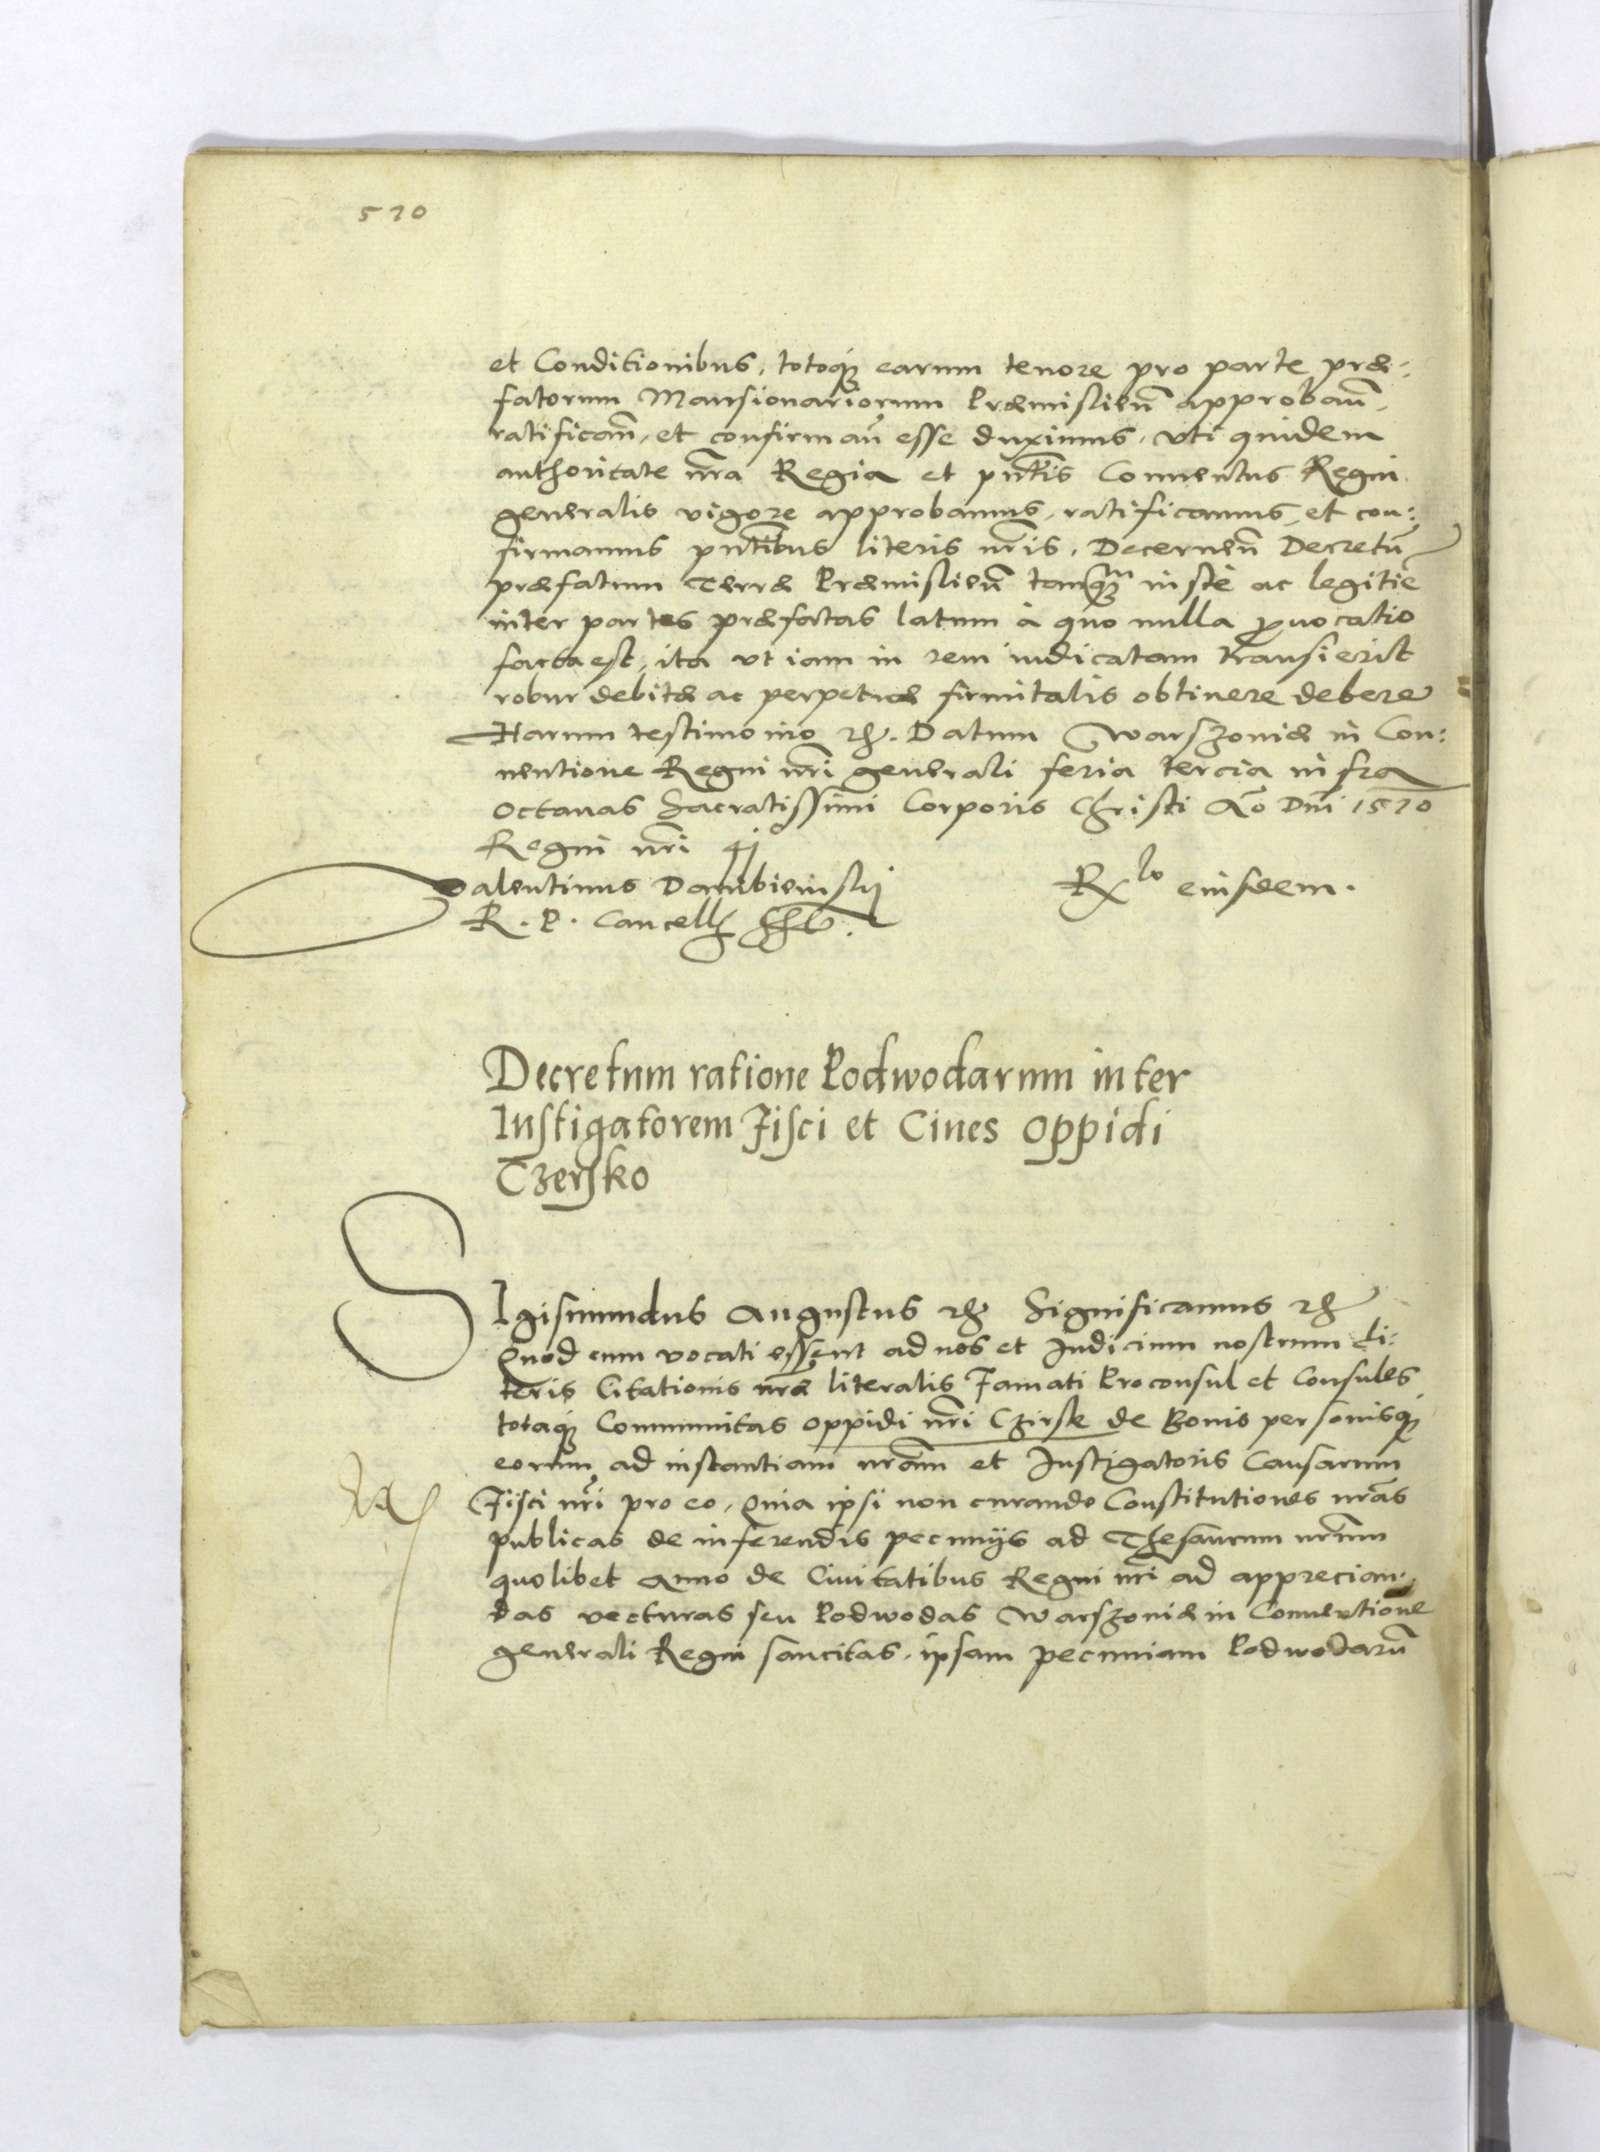 570
et Conditionibus, totoq́ꝫ earum tenore pro parte præ:
fatorum Mansionariorum Præmislieñ approbañ,
ratificañ, et confirmañ esse duximus, vti quidem
authoritate nr̃a Regia et pn̄tis Conuentus Regni
generalis vigore approbamus, ratificamus, et con:
firmamus pn̄tibus literis nr̃is. Decerneñ Decretũ
præfatum Terræ Præmislieñ tamqꝫ iuste ac legitiẽ
inter partes præfatas latum à quo nulla ꝓuocatio
facta est, ita vt iam in rem iudicatam transierit
robur debitæ ac perpetuæ firmitatis obtinere debere
Harum testimonio ꝛc̃. Datum Warszouiæ in Con:
uentione Regni nr̃i generali feria tercia infra
Octauas Sacratissimi Corporis Christi Aõ Dñi 1570
Regni nr̃i 41°
Valentinus Dambienskij
R. P. Cancell̃
Rx^lo eiusdem.
Decretum ratione Podwodarum inter
Instigatorem Fisci et Ciues Oppidi
Czersko
SIgismundus Augustus ꝛc̃ Significamus ꝛc̃
Quod cum vocati essent ad nos et Iudicium nostrum li:
teris Citationis nr̃æ literalis Famati Proconsul et Consules
totaq́ꝫ Communitas oppidi nr̃i Czirsk de Bonis personisq́ꝫ
eorum, ad instantiam nr̃am et Instigatoris Causarum
Fisci nr̃i pro eo, Quia ipsi non curando Constitutiones nr̃as
publicas de inferendis pecunijs ad Thesaurum nr̃um
quolibet Anno de Ciuitatibus Regni nr̃i ad apprecian:
das vecturas seu Podwodas Warszouiæ in Conuentione
generali Regni sancitas, ipsam pecuniam Podwodarũ